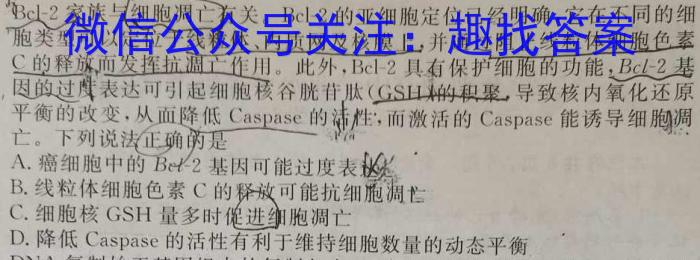 Bcl-2 家族与细胞凋亡有关。Bcl-2 的亚细胞定位已经明确,它在不同的细
胞类型
微信公众号关注：趣找答案
细胞色素
C 的释放而发挥抗凋亡作用。此外,Bcl-2 具有保护细胞的功能,Bcl-2 基
因的过度表达可引起细胞核谷胱苷肽(GSH)的积聚,导致核内氧化还原
平衡的改变,从而降低 Caspase 的活性,而激活的 Caspase 能诱导细胞凋
亡。下列说法正确的是
A. 癌细胞中的 Bcl-2 基因可能过度表达
B. 线粒体细胞色素 C 的释放可能抗细胞凋亡
C. 细胞核 GSH 量多时促进细胞凋亡
D. 降低 Caspase 的活性有利于维持细胞数量的动态平衡